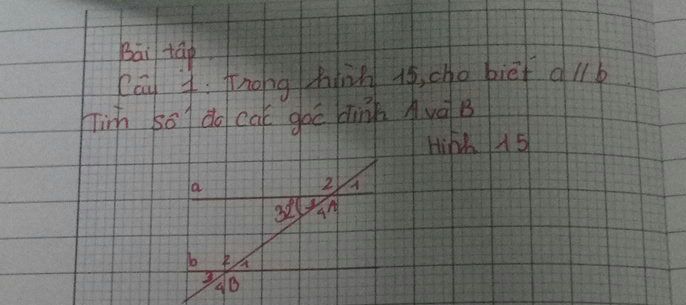 Bài tập
Câu 1: Trong hình 15, cho biết a // b.
Tìm số đo các góc đỉnh A và B
Hình 15
a 2 1
32° 3 4 A
b 2 1
3 4 B